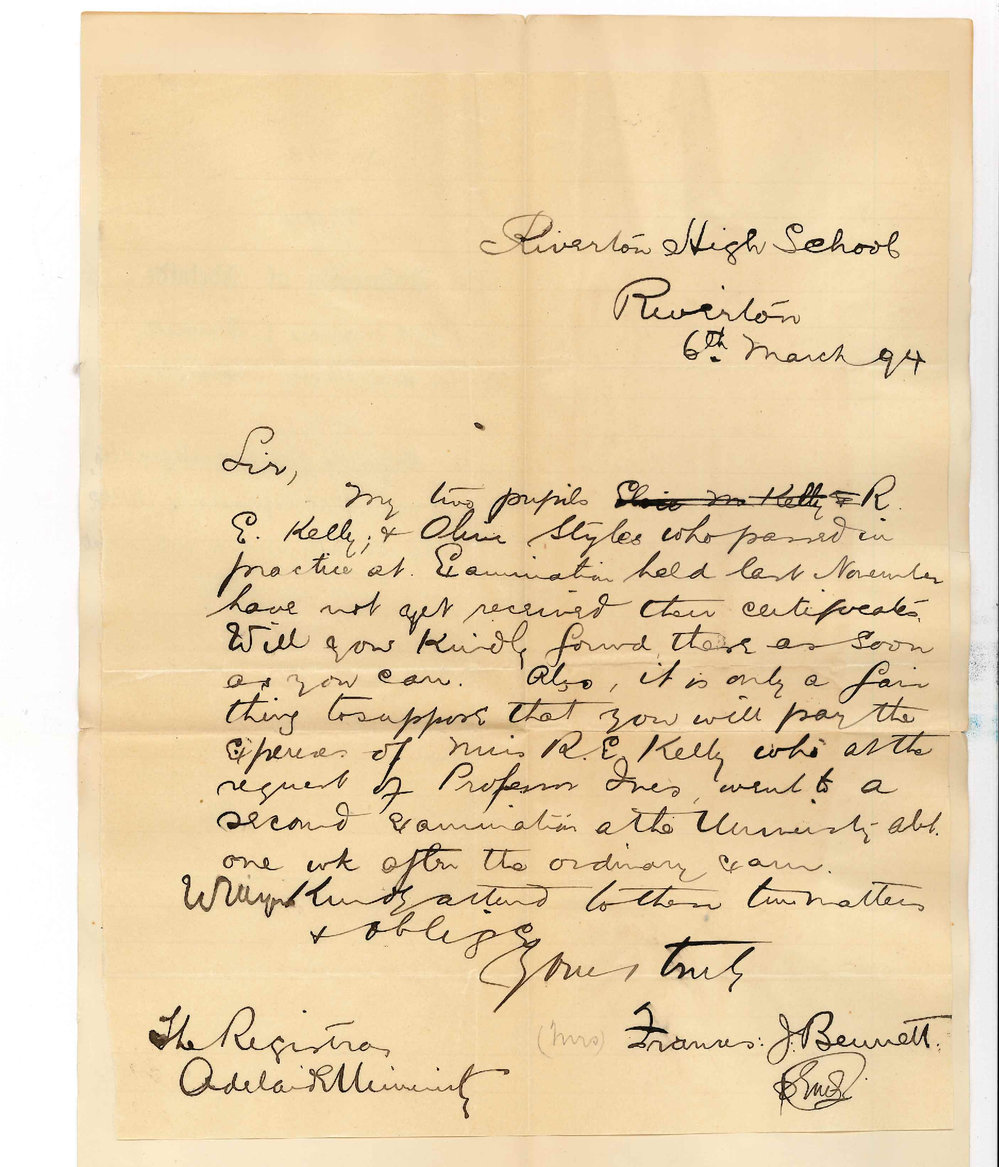 Riverton High School
Riverton
6th March 94
Sir,
My two pupils Elsie M Kelly & R.
E. Kelly, & Olive Styles who passed in
practice at Examination held last November
have not yet received their certificates.
Will you Kindly forwd these as soon
as you can. Also, it is only a fair
thing to suppose that you will pay the
Expenses of Miss R.E. Kelly who at the
request of Professor Ives, went to a
second Examination at the University abt.
one wk after the ordinary Exam.
Will you Kindly attend to these two matters
& oblige
Yours truly
(Mrs) Frances. J. Bennett.
The Registrar
Adelaide University